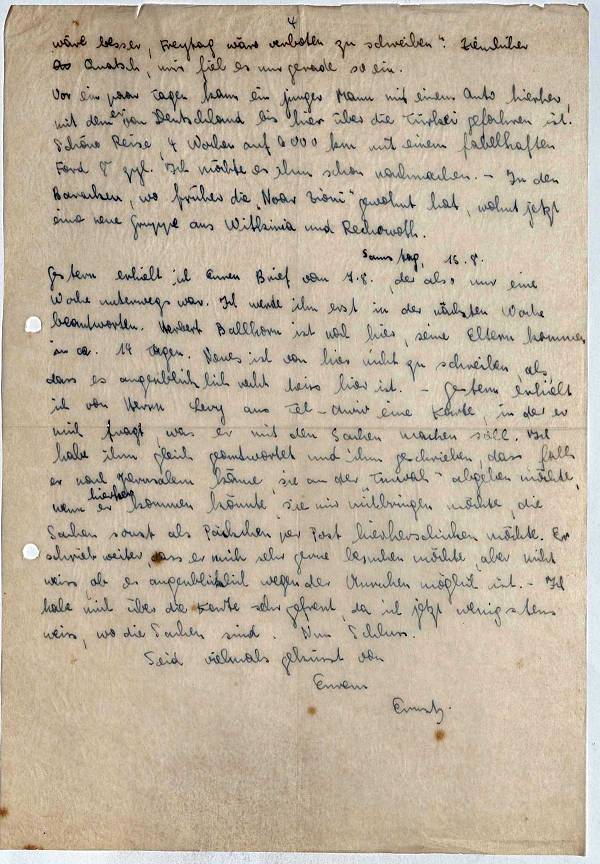 4
wäre besser, Freytag wäre verboten zu schreiben". Ziemlicher
Quatsch, mir fiel es nur gerade so ein.
Vor ein paar Tagen kam ein junger Mann mit einem Auto hierher,
mit dem er von Deutschland bis hier über die Türkei gefahren ist.
Schöne Reise, 4 Wochen auf 6000 km mit einem fabelhaften
Ford 8 zyl. Ich möchte es ihm schon nachmachen. – In den
Baracken, wo früher die "Noar Zioni" gewohnt hat, wohnt jetzt
eine neue Gruppe aus Witkinia und Rechowoth.
Samstag, 15.8.
Gestern erhielt ich Euren Brief vom 7.8., der also nur eine
Woche unterwegs war. Ich werde ihn erst in der nächsten Woche
beantworten. Herbert Ballhorn ist noch hier, seine Eltern kommen
in ca. 14 Tagen. Neues ist von hier nicht zu schreiben, als
dass es augenblicklich recht heiss hier ist. – Gestern erhielt
ich von Herrn Levy aus Tel-Awiw eine Karte, in der er
mich fragt, was er mit den Sachen machen soll. Ich
habe ihm gleich geantwortet und ihm geschrieben, dass falls
er nach Jerusalem käme, sie an der abgeben möchte,
wenn er hierher kommen könnte, sie mir mitbringen möchte, die
Sachen sonst als Päckchen per Post hierherschicken möchte. Er
schrieb weiter, dass er mich sehr gerne besuchen möchte, aber nicht
weiss ob es augenblicklich wegen der Unruhen möglich ist. – Ich
habe mich über die Karte sehr gefreut, da ich jetzt wenigstens
weiss, wo die Sachen sind. Nun Schluss.
Seid vielmals gegrüsst von
Eurem
Ernst.